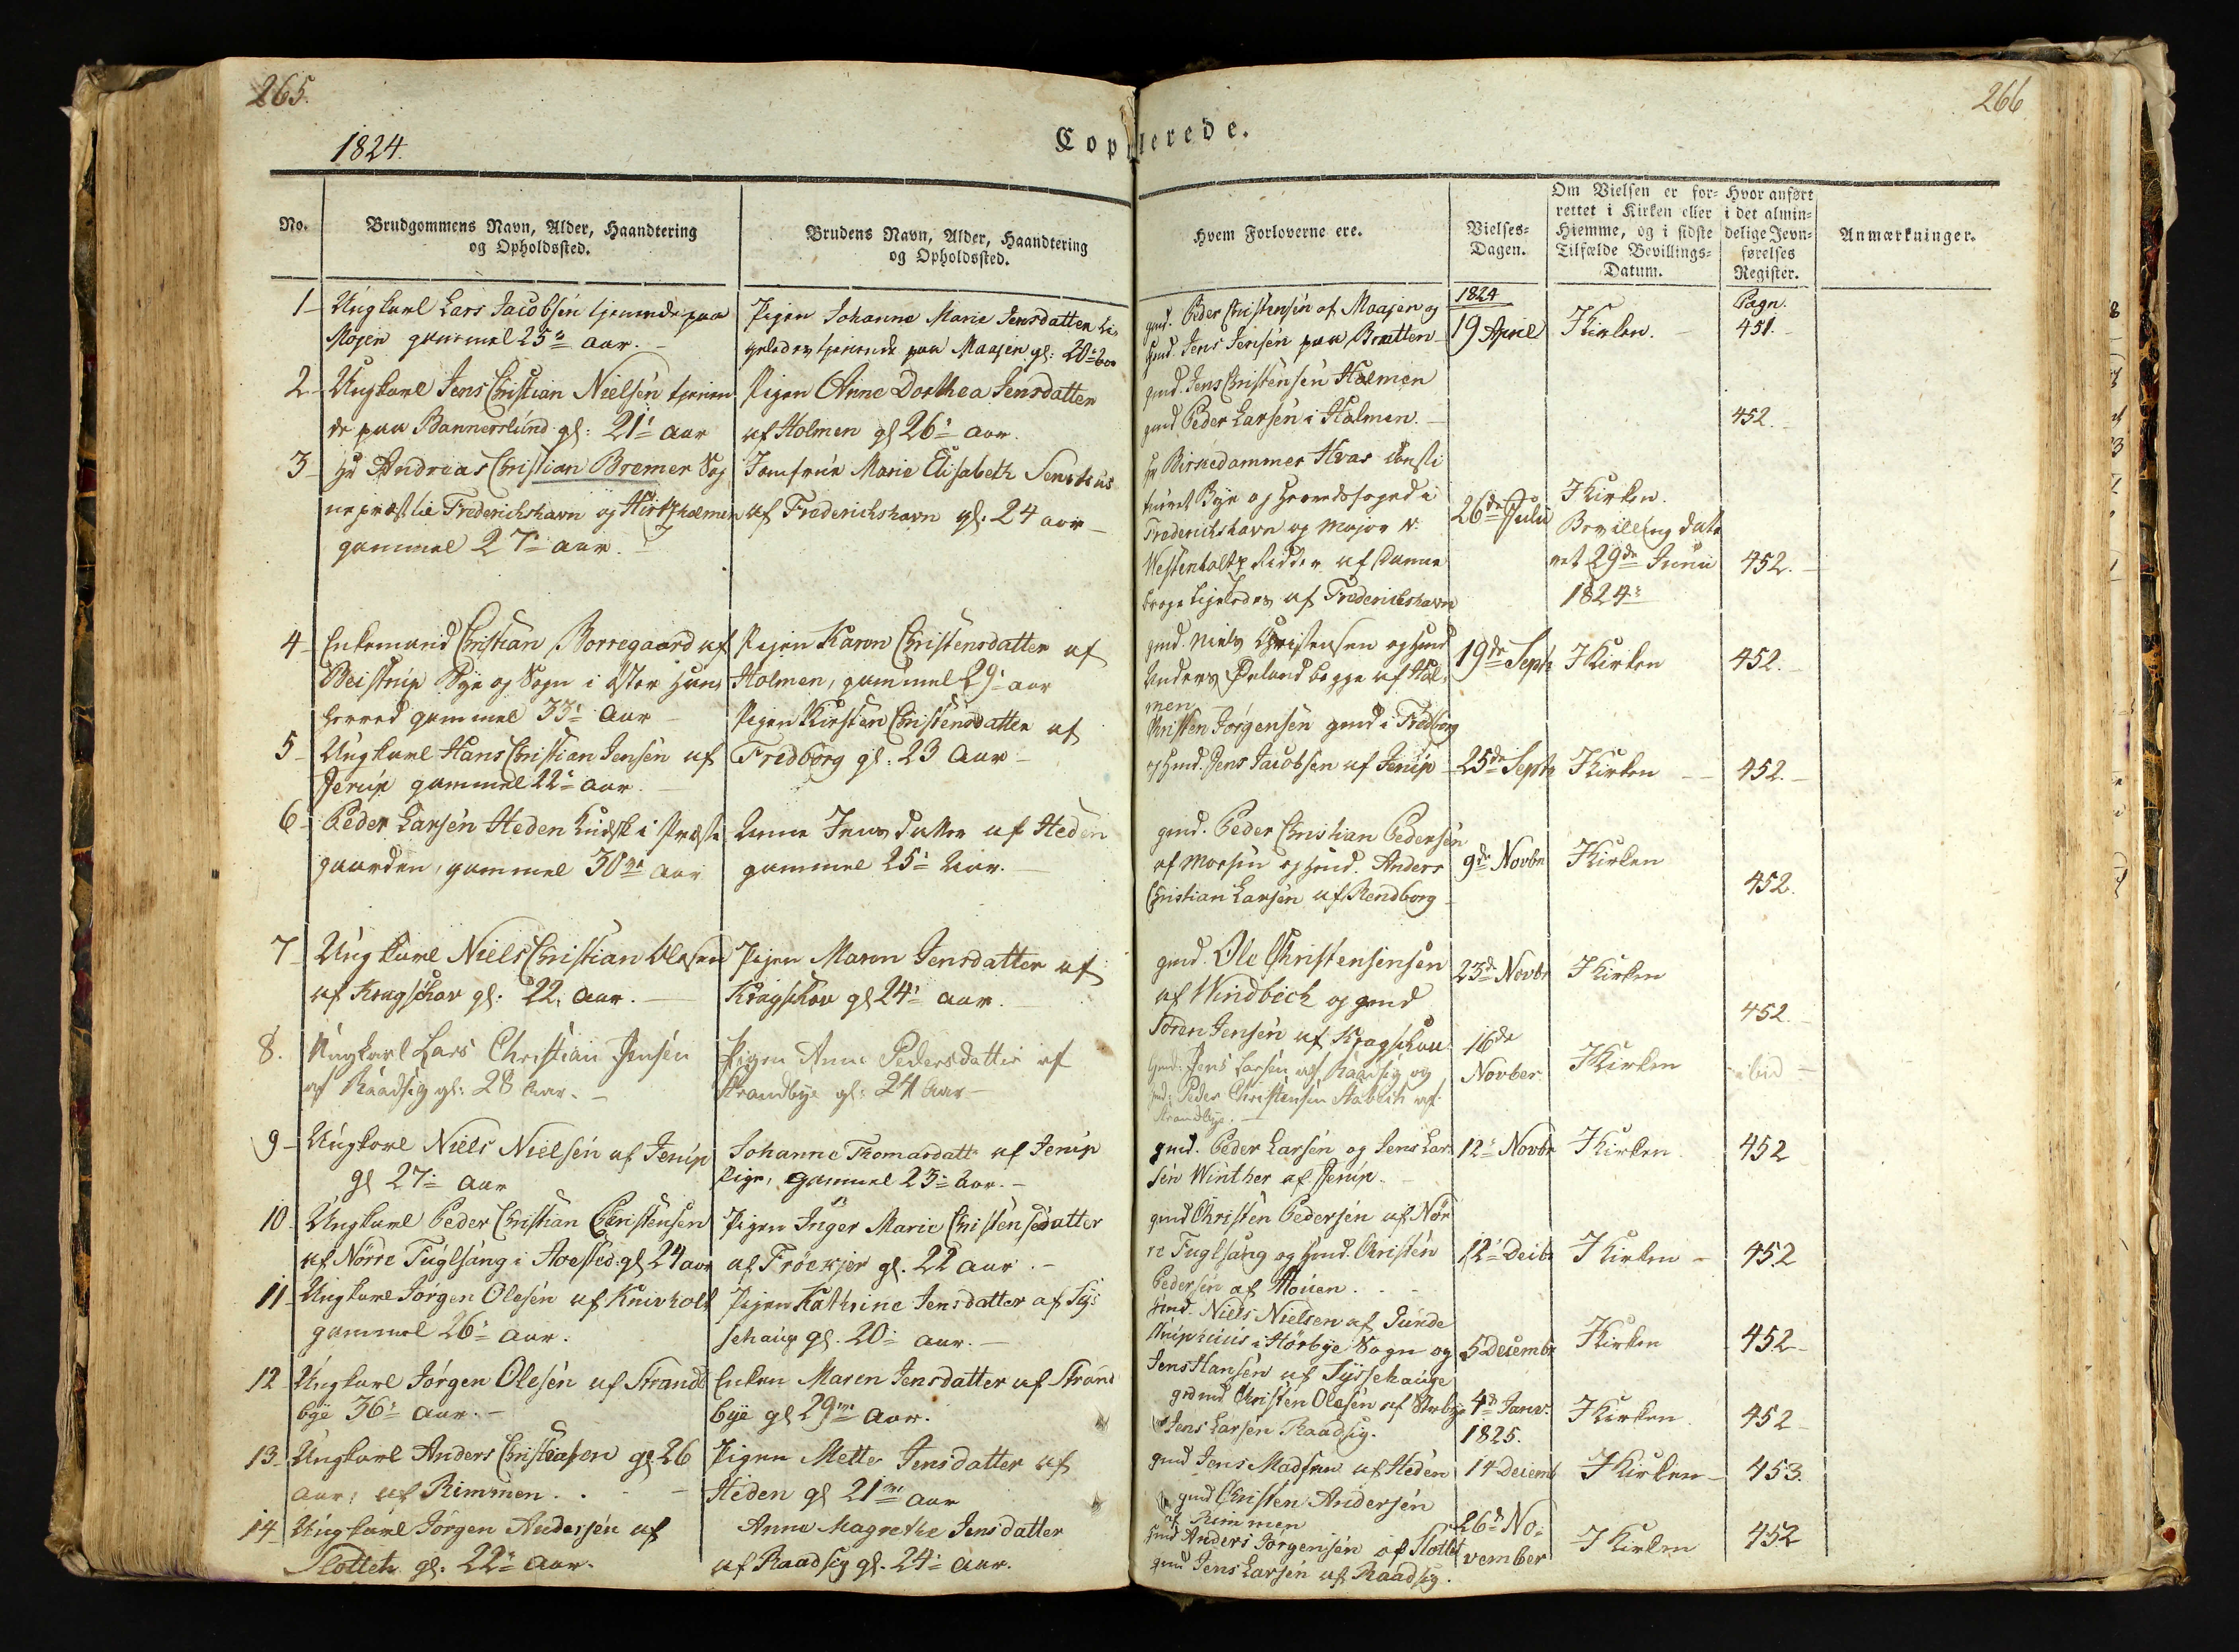 265.
266.
1824.
Copulerede.
No.
Brudgommens Navn, Alder, Haandtering
og Opholdssted.
Brudens Navn, Alder, Haandtering
og Opholdssted.
Hvem Forloverne ere.
Vielses-
Dagen.
Om Vielsen er for-
rettet i Kirken eller
Hiemme, og i sidste
Tilfælde Bevillings-
Datum.
Hvor anført
i det almin-
delige Jevn-
førelses
Register.
Anmærkninger.
1 Ungkarl Lars Jacobsen tjenende paa
Mojen gammel 25 aar.
Pigen Johanne Marie Jensdatter li-
geledes tjenende paa Maajen gl: 20
gmd. Peder Christensen af Maajen og
Hmd. Jens Jensen paa Bratten
1824
19 April
I Kirken.
Pagn.
451.
2 Ungkarl Jens Christian Nielsen tjenen
de paa Bannerslund gl: 21 aar
Pigen Anne Dorthea Jensdatter
af Holmen gl 26 aar.
gmd. Jens Christensen Holmen
gmd Peder Larsen i Holmen.
452.
3 Hr Andreas Christian Bremer Sog
nepræst til Frederichshavn og Hirtzholmen
gammel 27 aar.
Jomfrue Marie Elisabeth
af Frederichshavn gl. 24 aar
Hr Birkedommer Hvas consti
tueret Bye og Herredsfoged i
Frederichshavn og Major v.
Westenholtz Ridder af Danne
broge ligeledes af Frederichshavn
26de Julii
I Kirken.
Bevilling date
ret 29de Junii
1824
452.
4 Enkemand Christian Borregaard af
Beistrup Bye og Sogn i Øster Han
herred gammel 33 aar
Pigen Karen Christensdatter af
Holmen, gammel 29 aar
gmd. Niels Christensen og Hmd
Anders Ørland begge af Hol-
men
19de Septr
I Kirken
452.
5 Ungkarl Hans Christian Jensen af
Jerup gammel 22 aar.
Pigen Kirsten Christensdatter af
Fredborg gl: 23 Aar
Christen Jørgensen gmd i Fredborg
og Hmd. Jens Jacobsen af Jerup
25de Septr
I Kirken
452.
6 Peder Larsen Heden Kudsk i Præste
gaarden, gammel 30 aar
Anne Jensdatter af Heden
gammel 25 Aar.
gmd. Peder Christian Pedersen
af og Hmd. Anders
Christian Larsen af Rendborg
9de Novbr
I Kirken
452.
7 Ungkarl Niels Christian Olesen
af Kragskov gl: 22 aar.
Pigen Maren Jensdatter af
Kragskov gl 24 aar.
gmd. Ole Christensensen
af Windbich og gmd
Søren Jensen af Kragskov
23de Novbr
I Kirken
452.
8. Ungkarl Lars Christian Jensen
af Raadsig gl: 28 Aar.
Pigen Anne Pedersdatter af
Strandbye gl: 24 Aar
Gmd. Jens Larsen af Raadsig og
Hmd: Peder Christensen Stabech af
Strandbye.
16de
Novber
I Kirken
ibid
9 Ungkarl Niels Nielsen af Jerup
gl 27 Aar
Johanne Thomasdatt af Jerup
Pige, gammel 23 aar.
gmd. Peder Larsen og Jens Lar-
sen Winther af Jerup.
12 Novbr
I Kirken.
452
10 Ungkarl Peder Christian Christensen
af Nørre Fuglsang i Aasted gl 24 aar
Pigen Inger Marie Christensdatter
af Frøekjer gl. 22 aar.
gmd Christen Pedersen af Nør
re Fuglsang og Hmd. Christen
Pedersen af
12 Decbr
I Kirken
452
11 Ungkarl Jørgen Olesen af Knivholt
gammel 26 aar.
Pigen Kathrine Jensdatter af Tys-
sehauge gl. 20 aar.
Hmd. Niels Nielsen af Lunde
i Hørbye Sogn og
Jens Hansen af Tyssehauge
5 Decembr
I Kirken
452
12 Ungkarl Jørgen Olesen af Strand
bye 36 aar.
Enken Maren Jensdatter af Strand
bye gl 29 Aar.
grdmd Christen Olesen af
Jens Larsen Raadsig.
4de Janv.
1825.
I Kirken.
452
13 Ungkarl Anders Christiansen gl 26
aar, af Rimmen.
Pigen Mette Jensdatter af
Heden gl 21 aar
gmd Jens Madsen af Heden
gmd Christen Andersen
af Rimmen
14 Decemb
I Kirken
453.
14 Ungkarl Jørgen Andersen af
Slottet gl. 22 aar.
Anne Magrethe Jensdatter
af Raadsig gl. 24 aar.
Hmd Anders Jørgensen af Slottet
gmd Jens Larsen af Raadsig.
26de No-
vember
I Kirken
452